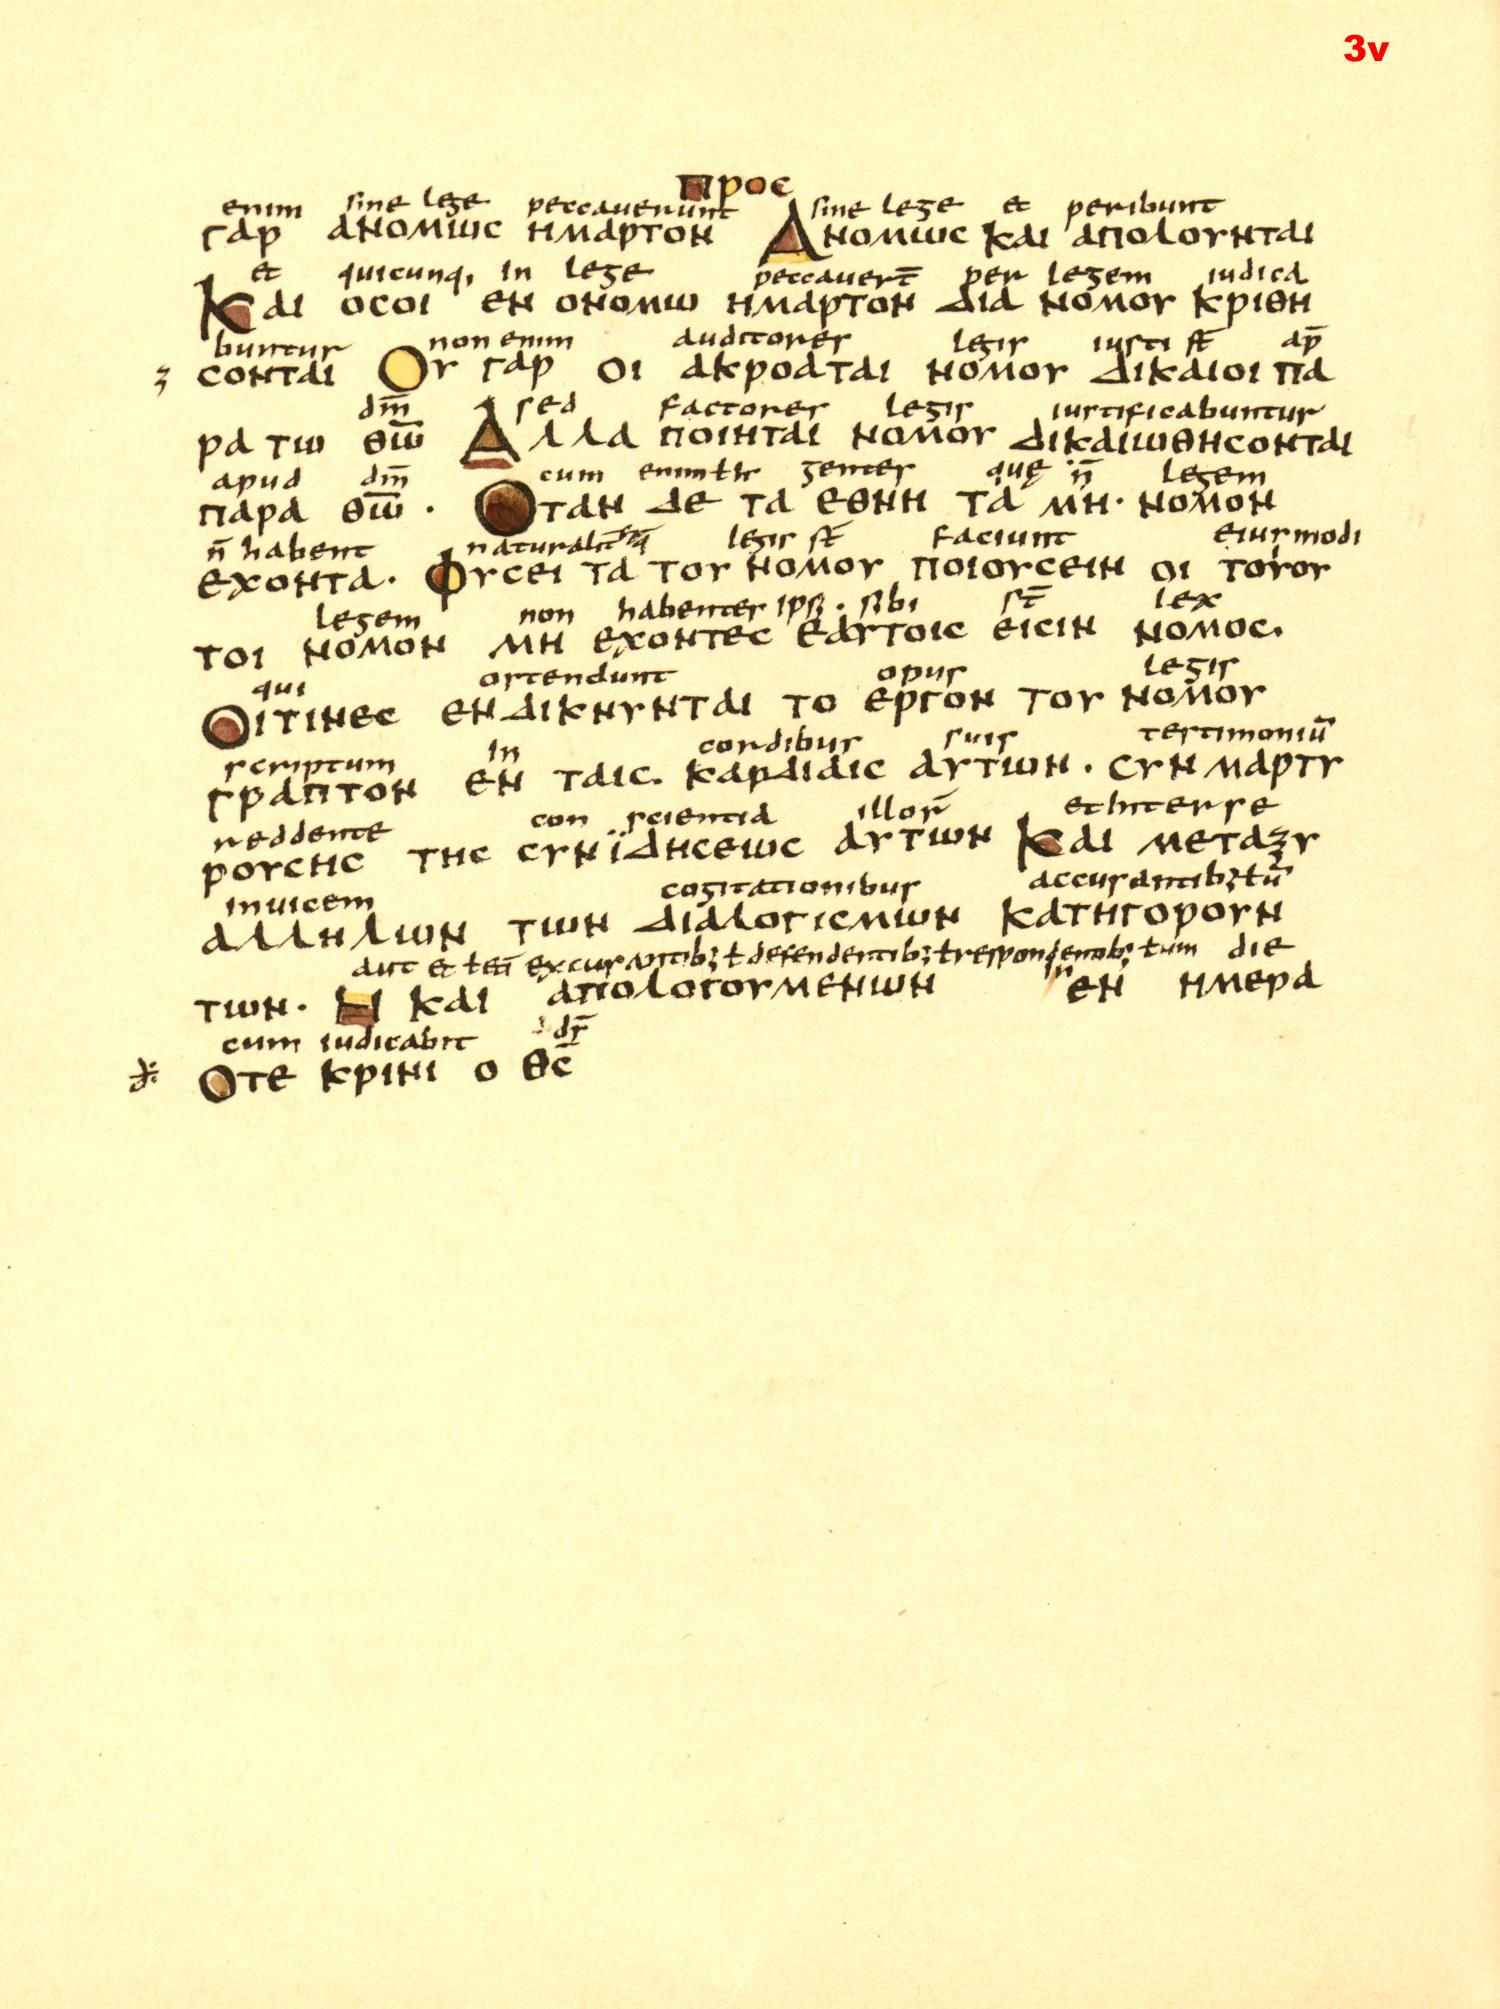 3v
προς
enim sine lege peccauerunt sine lege et peribunt
γαρ ανομωσ ημαρτον Ανομωσ και απολουνται
et quicunq; in lege peccauert̄ per legem iudica
Και οσοι εν ονομω ημαρτον δια νομου κριθη
buntur non enim auditores legis iusti st̄ ap̄
ʒ σονται Ου γαρ οι ακροαται νομου δικαιοι πα
dm̄ sed factores legis iustificabuntur
ρα τω θω̄ Αλλα ποιηται νομου δικαιωθησονται
apud dm̄ cum enim gentes quę n̄ legem
παρα θω̄ · Οταν δε τα εθνη τα μη· νομον
n̄ habent legis st̄ faciunt eiusmodi
εχοντα· Φυσει τα του νομου ποιουσειν οι τουου
legem non habentes ipsi · sibi st̄ lex
τοι νομον μη εχοντες εαυτοις εισιν νομος.
qui ostendunt opus legis
Οιτινες ενδικνυνται το εργον του νομου
scriptum in cordibus suis testimoniū
γραπτον εν ταις. καρδιαις αυτων · συν μαρτυ
reddente con scientia illor̄ et inter se
ρουσης της συνϊδησεως αυτων Και μεταξυ
inuicem cogitationibus accusantib;
αλληλων των διαλογισμων κατηγορουν
aut et excusantib; ł defendentib; ł respondentib; ł tum die
των· Η και απολογουμενων in εν ημερα
cum iudicabit ds̄
Οτε κρινι ο θς̄